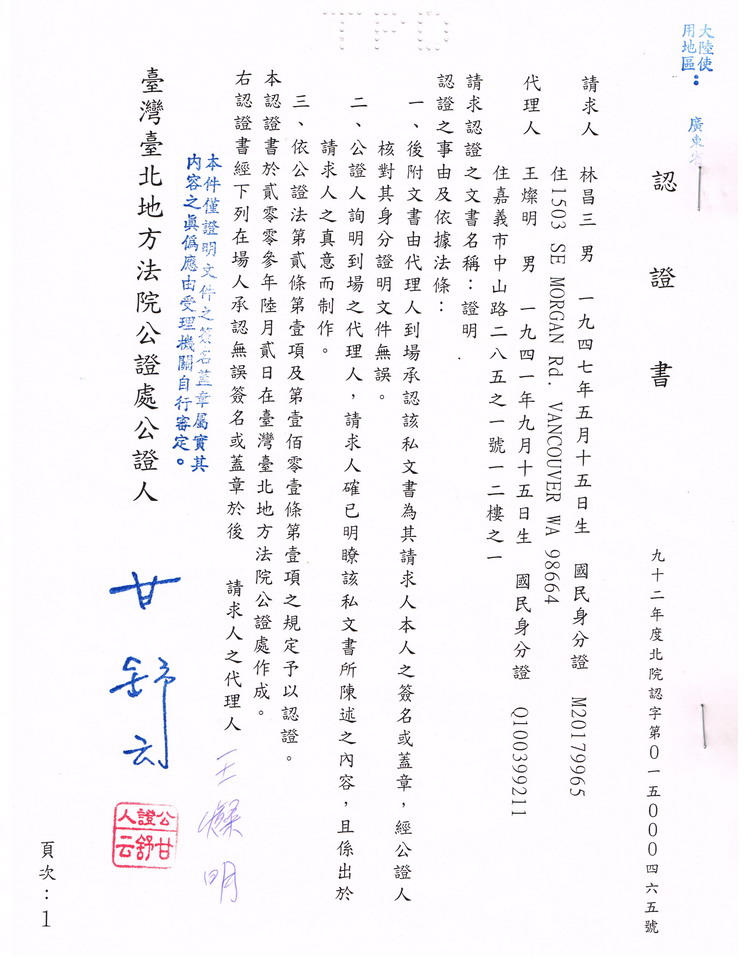 TPD
大陸使
用地區：廣東省
認證書
九十二年度北院認字第0一五000四六五號
請求人 林昌三 男 一九四七年五月十五日生 國民身分證 M20179965
住1503 SE MORGAN Rd. VANCOUVER WA 98664
代理人 王燦明 男 一九四一年九月十五日生 國民身分證 Q100399211
住嘉義市中山路二八五之一號一二樓之一
請求認證之文書名稱：證明
認證之事由及依據法條：
一、後附文書由代理人到場承認該私文書為其請求人本人之簽名或蓋章，經公證人
核對其身分證明文件無誤。
二、公證人詢明到場之代理人，請求人確已明瞭該私文書所陳述之內容，且係出於
請求人之真意而制作。
三、依公證法第貳條第壹項及第壹佰零壹條第壹項之規定予以認證。
本認證書於貳零零參年陸月貳日在臺灣臺北地方法院公證處作成。
右認證書經下列在場人承認無誤簽名或蓋章於後 請求人之代理人 王燦明
本件僅證明文件之簽名蓋章屬實其
內容之真偽應由受理機關自行審定。
臺灣臺北地方法院公證處公證人 甘舒云
公證人
甘舒云
頁次：1